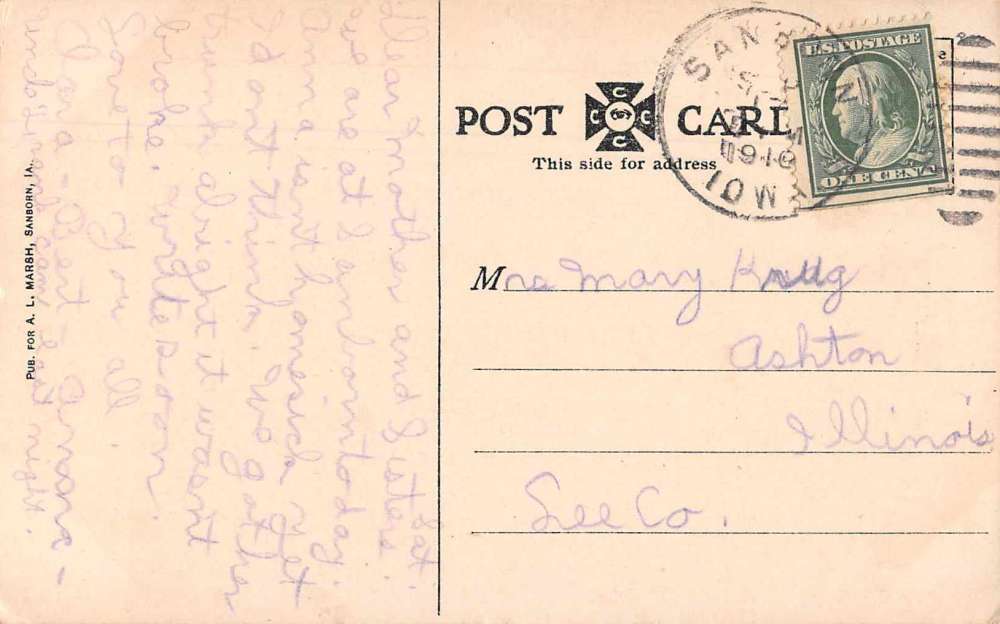 Sat.
Dear Mother and Sisters.
we are at Sanborn today.
Anna isant homesick yet
I dont think. We got her
trunk alright it wasnt
broke. write soon.
Love to you all.
Clara - Gert - Anna -
wind last night.
PUB. FOR A. L. MARSH, SANBORN, IA.
POST CARD
CCCC
This side for address
SANBORN
1910
IOWA
U.S. POSTAGE
ONE CENT
Mrs Mary Krug
Ashton
Illinois
Lee Co.